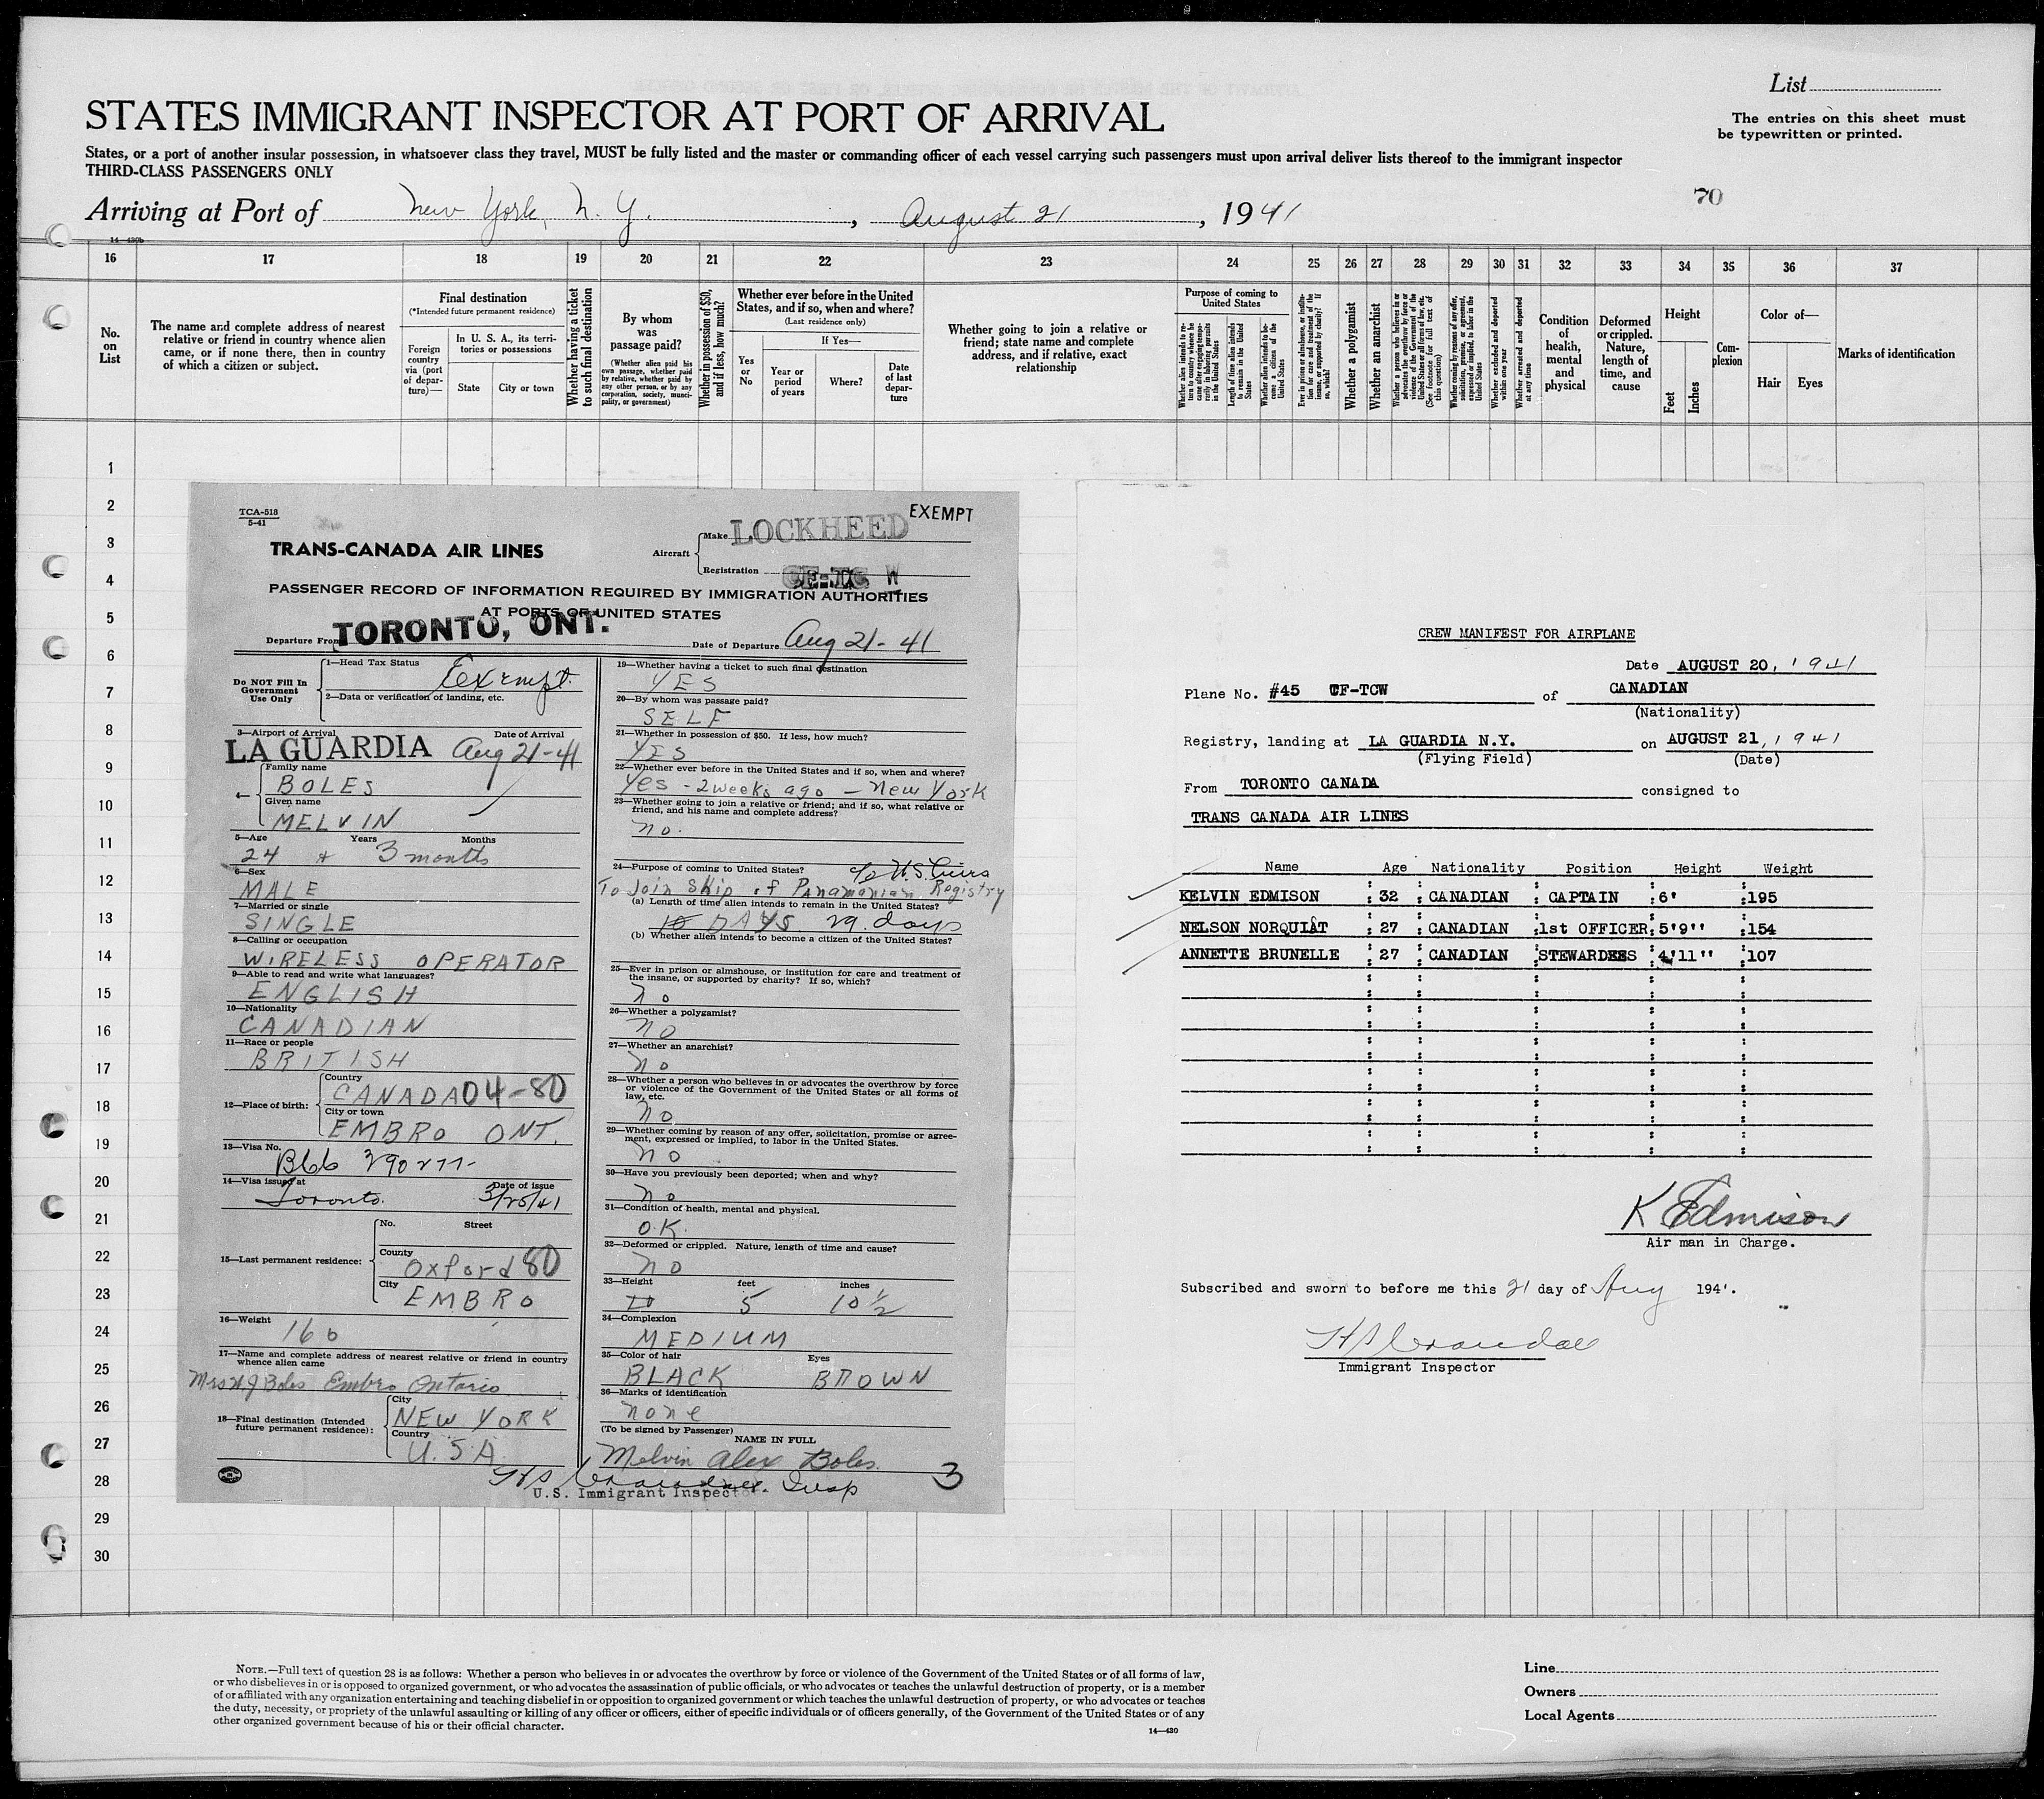 List
The entries on this sheet must
be typewritten or printed.
STATES IMMIGRANT INSPECTOR AT PORT OF ARRIVAL
States, or a port of another insular possession, in whatsoever class they travel, MUST be fully listed and the master or commanding officer of each vessel carrying such passengers must upon arrival deliver lists thereof to the immigrant inspector
THIRD-CLASS PASSENGERS ONLY
70
Arriving at Port of New York, N. Y., August 21, 1941
14—430b
16 17 18 19 20 21 22 23 24 25 26 27 28 29 30 31 32 33 34 35 36 37
No. on List
The name and complete address of nearest relative or friend in country whence alien came, or if none there, then in country of which a citizen or subject.
Final destination
(*Intended future permanent residence)
Foreign country via (port of departure)—
In U. S. A., its territories or possessions
State
City or town
Whether having a ticket to such final destination
By whom was passage paid?
(Whether alien paid his own passage, whether paid by relative, whether paid by any other person, or by any corporation, society, municipality, or government)
Whether in possession of $50, and if less, how much?
Whether ever before in the United States, and if so, when and where?
(Last residence only)
Yes or No
If Yes—
Year or period of years
Where?
Date of last departure
Whether going to join a relative or friend; state name and complete address, and if relative, exact relationship
Purpose of coming to United States
Whether alien intends to return to country whence he came after engaging temporarily in laboring pursuits in the United States
Length of time alien intends to remain in the United States
Whether alien intends to become a citizen of the United States
Ever in prison or almshouse, or institution for care and treatment of the insane, or supported by charity? If so, which?
Whether a polygamist
Whether an anarchist
Whether a person who believes in or advocates the overthrow by force or violence of the Government of the United States or all forms of law, etc. (See footnote for full text of this question)
Whether coming by reason of any offer, solicitation, promise, or agreement, expressed or implied, to labor in the United States
Whether excluded and deported within one year
Whether arrested and deported at any time
Condition of health, mental and physical
Deformed or crippled. Nature, length of time, and cause
Height
Feet
Inches
Complexion
Color of—
Hair
Eyes
Marks of identification
1
2
3
4
5
6
7
8
9
10
11
12
13
14
15
16
17
18
19
20
21
22
23
24
25
26
27
28
29
30
TCA-518
5-41
EXEMPT
TRANS-CANADA AIR LINES
Aircraft
Make LOCKHEED
Registration CF-TC W
PASSENGER RECORD OF INFORMATION REQUIRED BY IMMIGRATION AUTHORITIES
AT PORTS OF UNITED STATES
Departure From TORONTO, ONT. Date of Departure Aug 21-41
Do NOT Fill In
Government
Use Only
1—Head Tax Status Exempt
2—Data or verification of landing, etc.
3—Airport of Arrival Date of Arrival
LA GUARDIA Aug 21-41
4—
Family name
BOLES
Given name
MELVIN
5—Age Years Months
24 + 3 months
6—Sex
MALE
7—Married or single
SINGLE
8—Calling or occupation
WIRELESS OPERATOR
9—Able to read and write what languages?
ENGLISH
10—Nationality
CANADIAN
11—Race or people
BRITISH
12—Place of birth:
Country
CANADA 04-80
City or town
EMBRO ONT.
13—Visa No.
14—Visa issued at Date of issue
Toronto. 3/25/41
15—Last permanent residence:
No. Street
County
Oxford 80
City
EMBRO
16—Weight
160
17—Name and complete address of nearest relative or friend in country
whence alien came
Boles Embro Ontario
18—Final destination (Intended
future permanent residence):
City
NEW YORK
Country
U.S.A.
19—Whether having a ticket to such final destination
YES
20—By whom was passage paid?
SELF
21—Whether in possession of $50. If less, how much?
YES
22—Whether ever before in the United States and if so, when and where?
Yes - 2 weeks ago - New York
23—Whether going to join a relative or friend; and if so, what relative or
friend, and his name and complete address?
no.
24—Purpose of coming to United States?
To Join Ship of Panamanian Registry
(a) Length of time alien intends to remain in the United States?
10 DAYS. 29 days
(b) Whether alien intends to become a citizen of the United States?
25—Ever in prison or almshouse, or institution for care and treatment of
the insane, or supported by charity? If so, which?
no
26—Whether a polygamist?
no
27—Whether an anarchist?
no
28—Whether a person who believes in or advocates the overthrow by force
or violence of the Government of the United States or all forms of
law, etc.
no
29—Whether coming by reason of any offer, solicitation, promise or agree-
ment, expressed or implied, to labor in the United States.
no
30—Have you previously been deported; when and why?
no
31—Condition of health, mental and physical.
O.K.
32—Deformed or crippled. Nature, length of time and cause?
no
33—Height feet inches
10 5 10 1/2
34—Complexion
MEDIUM
35—Color of hair Eyes
BLACK BROWN
36—Marks of identification
none
(To be signed by Passenger)
NAME IN FULL
Melvin Alex Boles.
Insp
U.S. Immigrant Inspector.
3
CREW MANIFEST FOR AIRPLANE
Date AUGUST 20, 1941
Plane No. #45 CF-TCW of CANADIAN
(Nationality)
Registry, landing at LA GUARDIA N.Y. on AUGUST 21, 1941
(Flying Field) (Date)
From TORONTO CANADA consigned to
TRANS CANADA AIR LINES
Name Age Nationality Position Height Weight
KELVIN EDMISON : 32 : CANADIAN : CAPTAIN : 6' : 195
NELSON NORQUIAT : 27 : CANADIAN : 1st OFFICER : 5'9'' : 154
ANNETTE BRUNELLE : 27 : CANADIAN : STEWARDESS : 4'11'' : 107
K Edmison
Air man in Charge.
Subscribed and sworn to before me this 21 day of Aug 194'.
Immigrant Inspector
NOTE.—Full text of question 28 is as follows: Whether a person who believes in or advocates the overthrow by force or violence of the Government of the United States or of all forms of law,
or who disbelieves in or is opposed to organized government, or who advocates the assassination of public officials, or who advocates or teaches the unlawful destruction of property, or is a member
of or affiliated with any organization entertaining and teaching disbelief in or opposition to organized government or which teaches the unlawful destruction of property, or who advocates or teaches
the duty, necessity, or propriety of the unlawful assaulting or killing of any officer or officers, either of specific individuals or of officers generally, of the Government of the United States or of any
other organized government because of his or their official character.
14—430
Line
Owners
Local Agents